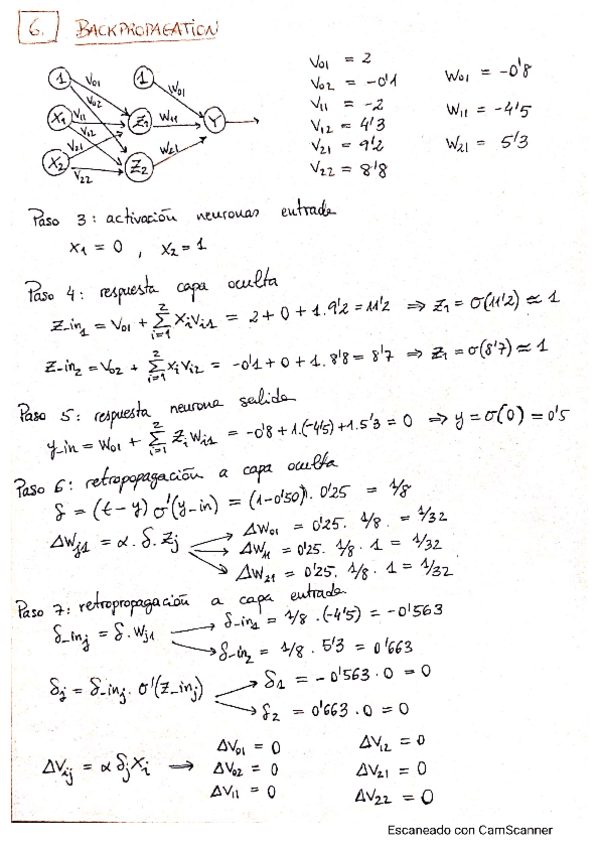 6. BACKPROPAGATION
1 V01 1 W01
V02
X1 V11 Z1 W11 Y
V12
V21 W21
X2 V22 Z2
V01 = 2
V02 = -0'1
V11 = -2
V12 = 4'3
V21 = 9'2
V22 = 8'8
W01 = -0'8
W11 = -4'5
W21 = 5'3
Paso 3: activación neuronas entrada
X1 = 0 , X2 = 1
Paso 4: respuesta capa oculta
Z-in1 = V01 + Σ(i=1..2) Xi Vi1 = 2+0+1.9'2 = 11'2 ⇒ Z1 = σ(11'2) ≈ 1
Z-in2 = V02 + Σ(i=1..2) Xi Vi2 = -0'1+0+1.8'8 = 8'7 ⇒ Z1 = σ(8'7) ≈ 1
Paso 5: respuesta neurona salida
y-in = W01 + Σ(i=1..2) Zi Wi1 = -0'8+1.(-4'5)+1.5'3 = 0 ⇒ y = σ(0) = 0'5
Paso 6: retropopagación a capa oculta
δ = (t-y) σ'(y-in) = (1-0'50). 0'25 = 1/8
ΔWj1 = α. δ. Zj
ΔW01 = 0'25. 1/8 . = 1/32
ΔW11 = 0'25. 1/8 . 1 = 1/32
ΔW21 = 0'25. 1/8 . 1 = 1/32
Paso 7: retropropagación a capa entrada
δ-inj = δ. Wj1
δ-in1 = 1/8 .(-4'5) = -0'563
δ-in2 = 1/8 . 5'3 = 0'663
δj = δ-inj. σ'(Z-inj)
δ1 = -0'563 . 0 = 0
δ2 = 0'663 . 0 = 0
ΔVij = α δj Xi →
ΔV01 = 0
ΔV02 = 0
ΔV11 = 0
ΔV12 = 0
ΔV21 = 0
ΔV22 = 0
Escaneado con CamScanner